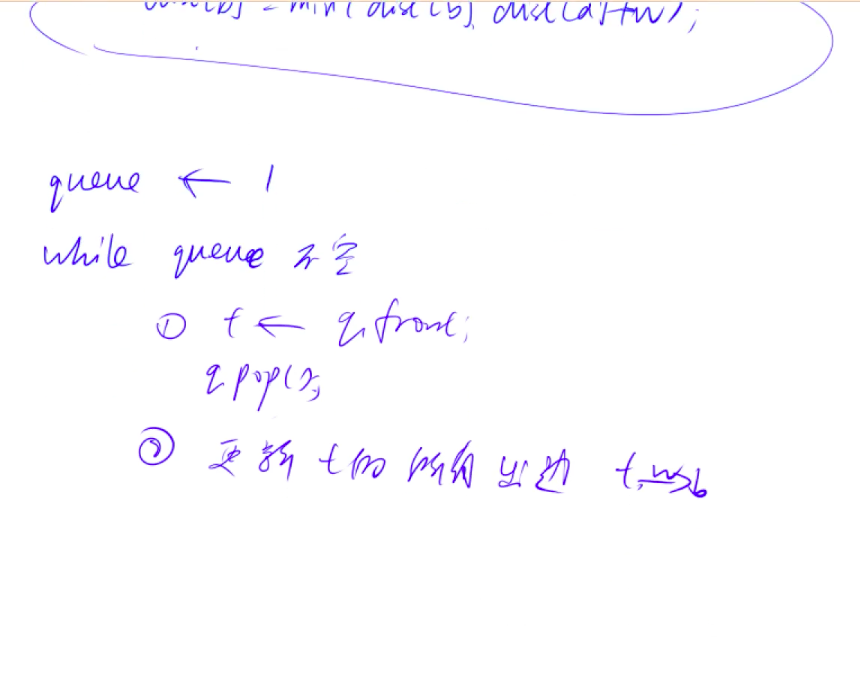 dist[b] = min(dist[b], dist[a]+w);
queue ← 1
while queue 不空
① t ← q.front;
q.pop();
② 更新 t的所有出边 t -w-> b